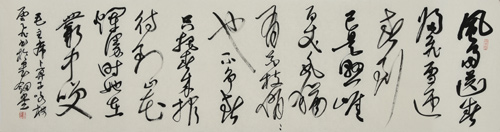 风雨送春
归飞雪迎
春到
已是悬崖
百丈冰犹
有花枝俏
俏
也不争春
只把春来报
待到山花
烂漫时她在
丛中笑
毛主席卜算子咏梅